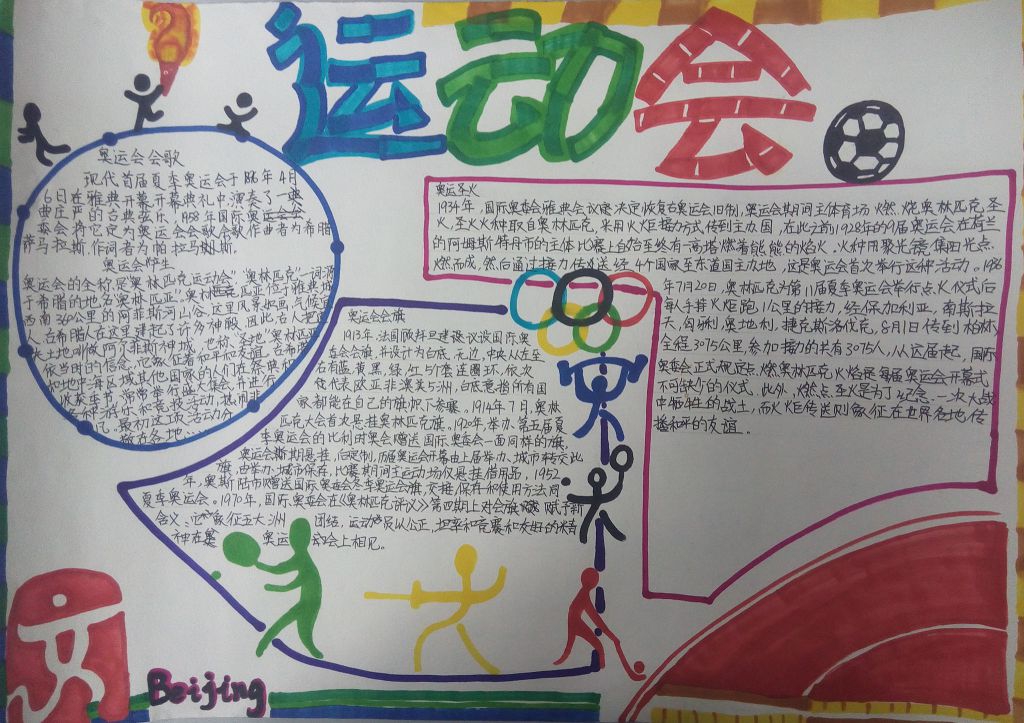 运动会
奥运会会歌
现代首届夏季奥运会于1896年4月
6日在雅典开幕,开幕典礼中演奏了一典
曲庄严的古典弦乐,1958年国际奥运会
委会将它定为奥运会会歌会歌作曲者为希腊
萨马拉斯,作间者为帕拉马斯.
奥运会
奥运会的全称是奥林匹克运动会"奥林匹克"一词源
于希腊的地名奥林匹亚"奥林匹亚位于雅典城
西南360公里的阿菲斯河山谷,这里风景如画,气候宜
人,古希腊人在这里建起了许多神殿,因此,古人把这
土地叫做阿尔菲斯神城,也称:圣地"奥林匹亚
依当时的信念,它象征着和平和友谊,古希腊
和地中海区域其他国家的人们在祭典和
收获季节,常常举行盛大集会,并进行
各种游乐和竞技活动,热闹非
凡,最初这项活动分
散在各地……
奥运圣火
1934年,国际奥委会雅典会议决定恢复古奥运会旧制,奥运会期间主体育场燃烧奥林匹克,圣
火,圣火火种取自奥林匹克,采用火炬接力方式传到主办国,在此之前,1928年的9届奥运会在荷兰
的阿姆斯特丹市的主体比赛上台始至终有一高塔燃着熊熊的焰火.火种用聚光镜集阳光点.
燃而成,然后通过接力传送经4个国家至东道国主办地,这是奥运会首次举行这种活动.1936
年7月20日,奥林匹克为第11届夏季奥运会举行点火仪式后
每人手持火炬跑1公里的接力,经保加利亚,南斯拉
夫,匈牙利,奥地利,捷克斯洛伐克,8月1日传到柏林,
全程3075公里,参加接力的共有3075人,从这届起,国际
奥委会正式规定点燃奥林匹克火焰是每届奥运会开幕式
不可缺少的仪式.此外,燃点圣火是为了纪念一次大战
中牺牲的战士,而火炬传送则象征在世界各地传
播和平的友谊.
奥运会会旗
1913年,法国顾拜旦建议设国际奥
委会会旗,并设计为白底,无边,中央从左至
右有蓝,黄,黑,绿,红5个套连圈环,依次
代表欧亚非澳美5洲,白底意指所有国
家都能在自己的旗帜下参赛.1914年7月,奥林
匹克大会首次悬挂奥林匹克旗,1920年,举办,第五届夏
季奥运会的比利时奥会赠送国际奥委会一面同样的旗,
奥运会斯期悬挂,后定制,历届奥运会开幕由上届举办,城市转交此
旗,由举办城市保存,比赛期间主运动场仅悬挂借用品,1952
年,奥斯陆市赠送国际奥委会冬季奥运会旗,交接,保存和使用方法同
夏季奥运会.1970年,国际奥委会在《奥林匹克评议》第四期上对会旗赋予新
含义:它象征五大洲团结,运动员以公正,坦率和竞赛和友好的精
神在奥运动会上相见。
Beijing